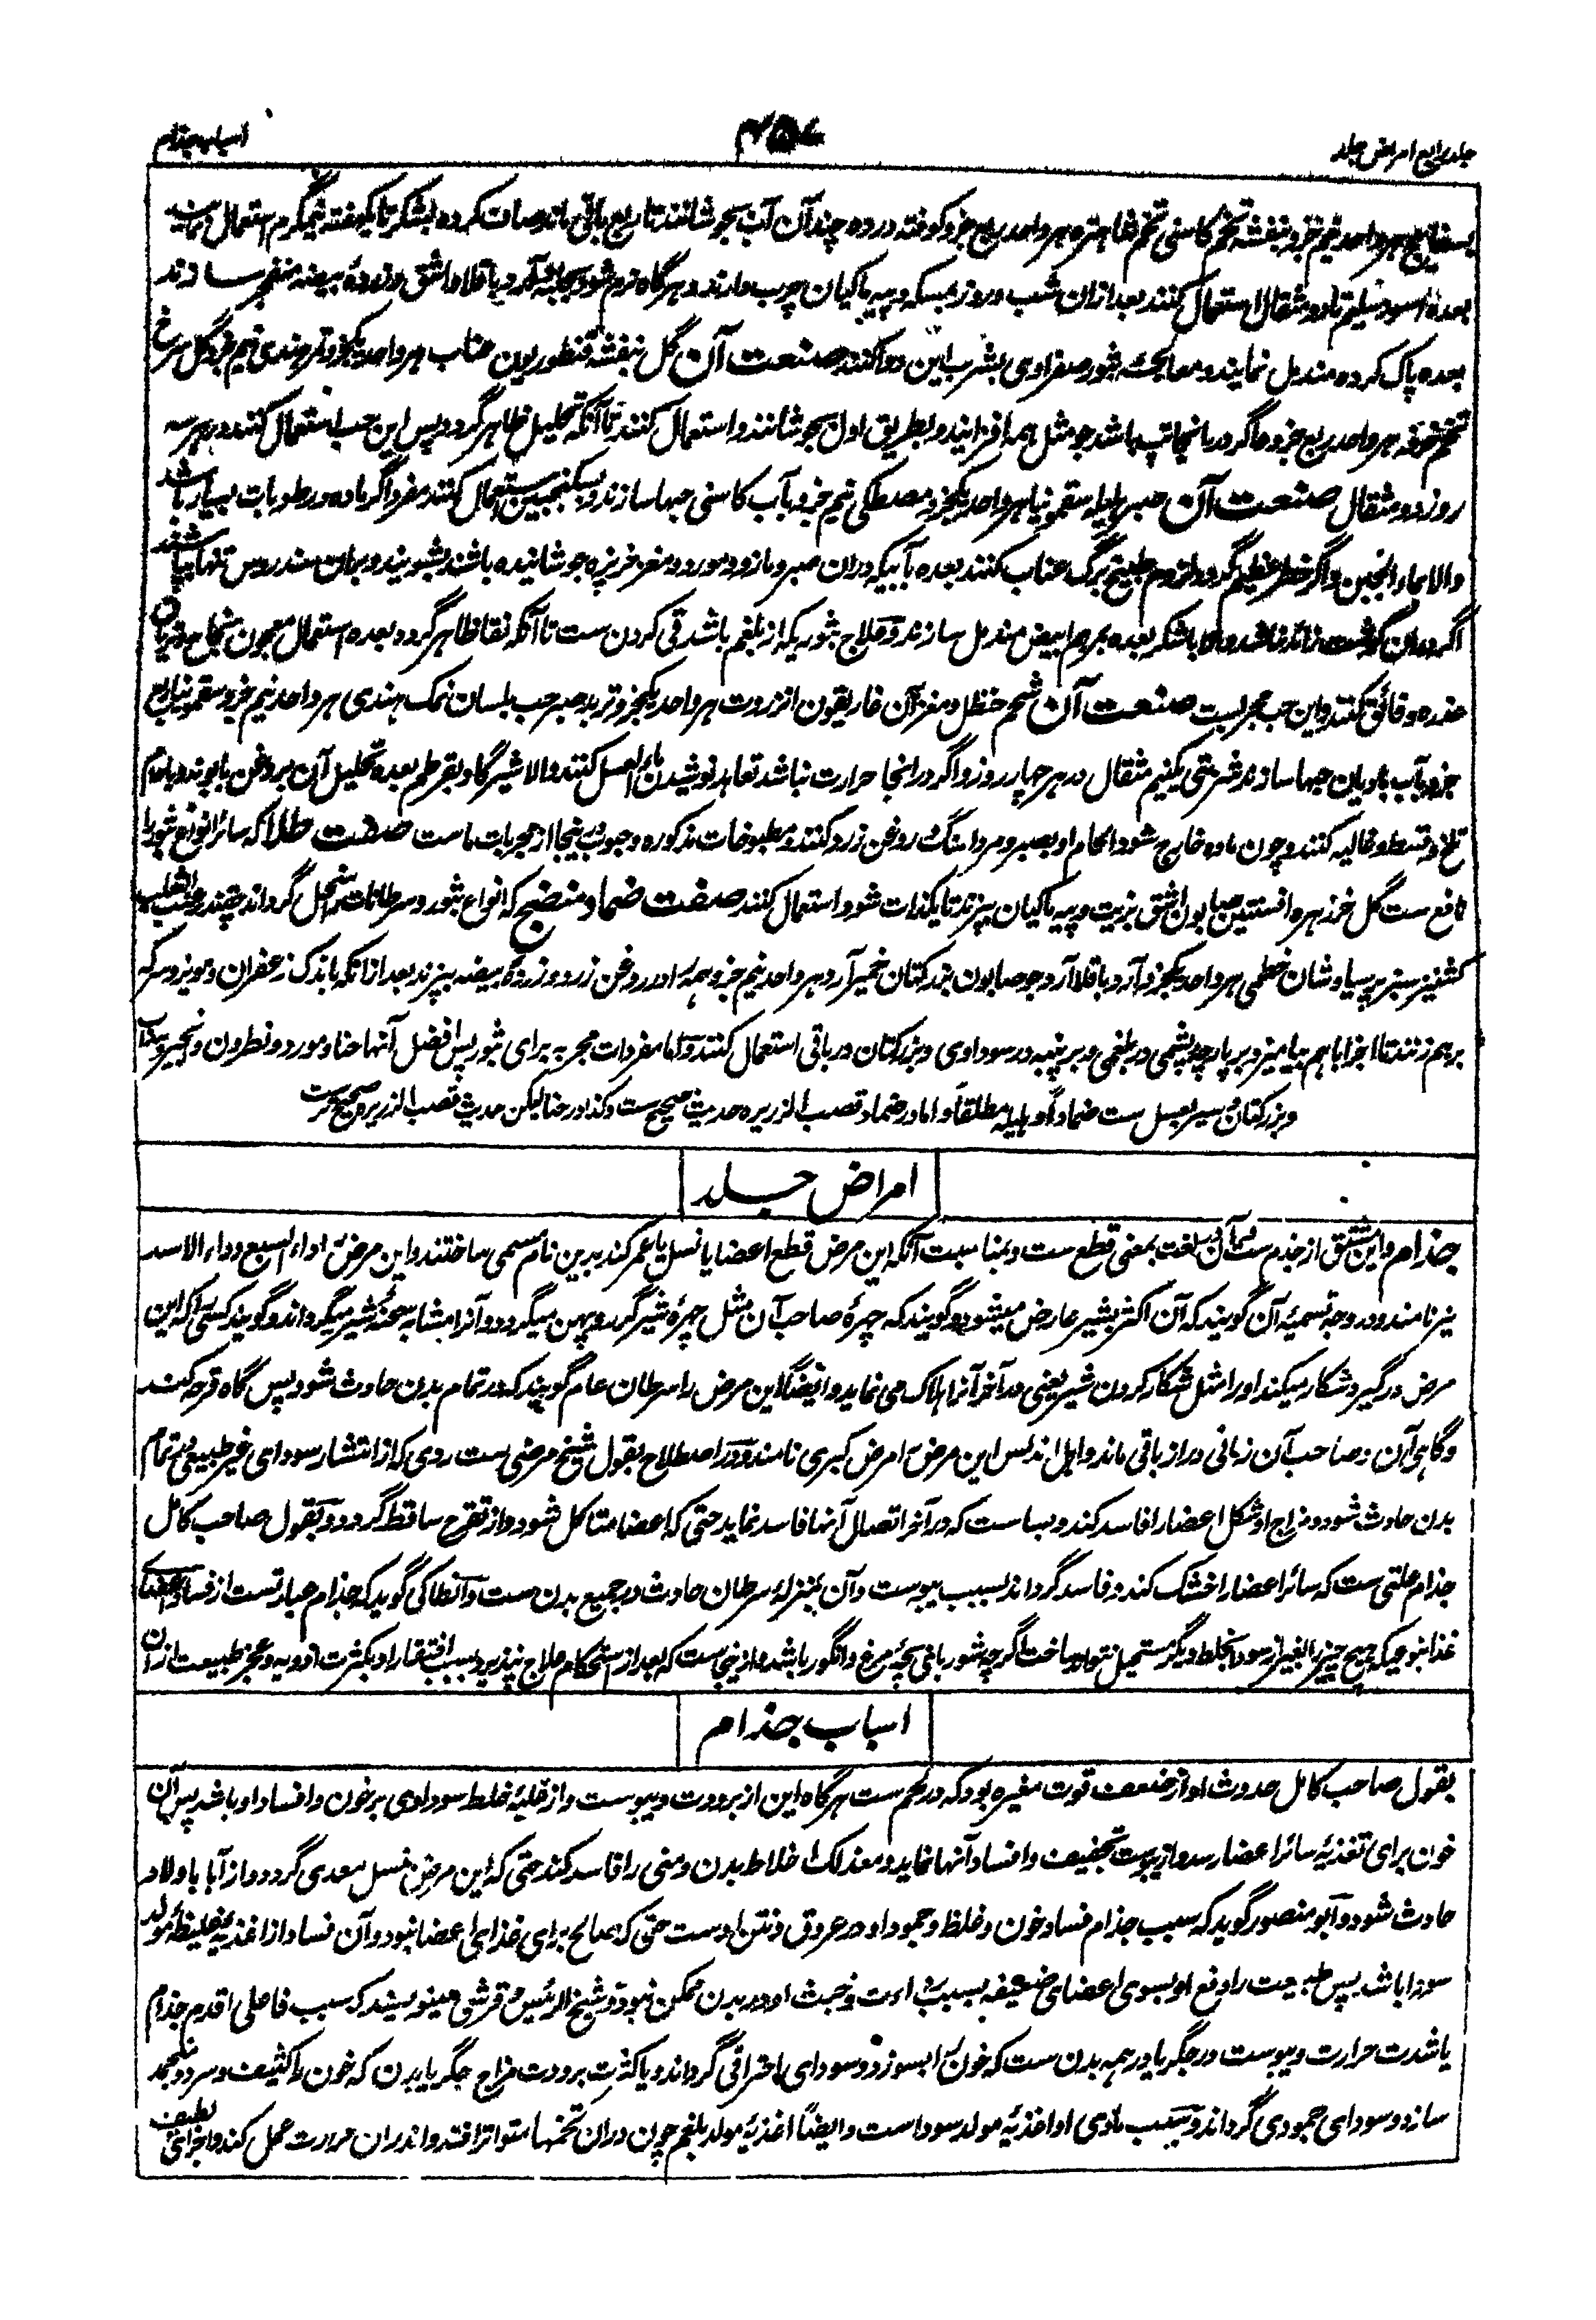 جلد رابع امراض جلد
۴۵۷
اسباب جذام
بسفایج هر واحد نیم جزو بنفشه تخم کاسنی تخم شاهتره هر واحد ربع جزو کوفته در ده چند آن آب بجوشانند تا ربع باقی ماند صاف کرده بشکر تا یکهفته نیمگرم استعمال نمایند
بعده اسود سلیم تا دو مثقال استعمال کنند بعد ازان شب و روز بمسکه و پیه ماکیان چرب دارند و هرگاه نرم شود بجلبه و آرد باقلا و اشق و زرده بیضه منفجر سازند
بعده پاک کرده مندمل نمایند و معالجه بثور صفراوی بشرب این دوا کنند صنعت آن گل بنفشه قنطوریون عناب هر واحد یکجزو تمر هندی نیم جزو گل سرخ
تخم خرفه هر واحد ربع جزو و اگر درینجا تپ باشد جو مثل همه افزایند و بطریق اول بجوشانند و استعمال کنند تا آنکه تحلیل ظاهر گردد پس این حب استعمال کنند در هر سه
روز دو مثقال صنعت آن صبر هلیله سقمونیا هر واحد یکجزو مصطکی نیم جزو بآب کاسنی حبها سازند و بسکنجبین استعمال کنند مفرد اگر ماده و رطوبات بسیار باشد
والا بماء الجبن و اگر خطر عظیم گردد لزوم طبیخ برگ عناب کنند بعده بآبیکه دران صبر و مازو و مورد و مغز خربزه جوشانیده باشند بشویند و بران سندروس تنها بپاشند
اگر دران گوشت زائد نباشد والا باشکر بعده بمرهم ابیض مندمل سازند و علاج بثوریکه از بلغم باشد قی کردن ست تا آنکه نقا ظاهر گردد بعده استعمال معجون نجاح و تریاق
عنده وفائق کنند و این حب مجربست صنعت آن شحم حنظل و مغز آن غاریقون انزروت هر واحد یکجزو تربد صبر حب بلسان نمک هندی هر واحد نیم جزو سقمونیا ربع
جزو بآب بادیان حبها سازند شربتی یکنیم مثقال در هر چهار روز و اگر در انجا حرارت نباشد تعاهد نوشیدن ماء العسل کنند والا شیر گاو بقرطم بعده تحلیل آن بروغن بابونه و بادام
تلخ و قسط و غالیه کنند و چون ماده خارج شود الحام او بصبر و مردارسنگ و روغن زرد کنند و مطبوخات مذکوره و حبوب درینجا از مجربات ماست صفت طلا که سائر انواع بثور را
نافع ست گل خرزهره افسنتین صابون اشق بزیت و پیه ماکیان بپزند تا یکذات شود استعمال کنند صفت ضماد منضج که انواع بثور و سرطانات را منحل گرداند چقندر عنب الثعلب
کشنیز سبز پرسیاوشان خطمی هر واحد یکجزو آرد باقلا آرد جو صابون بزرکتان خمیر آرد هر واحد نیم جزو همه را در روغن زرد و زرده بیضه بپزند بعد ازانکه باندک زعفران و مویز و سرکه
برهم زنند تا اجزا باهم بیامیزد بر پارچه پشمی در بلغمی و بر پنبه در سوداوی و بزرکتان در باقی استعمال کنند و اما مفردات مجربه برای بثور پس افضل آنها حنا و مورد و نطرون و انجیر
و بزرکتان و سیر بعسل ست ضماداً و هلیله مطلقاً و اما در ضماد قصب الزریره حدیث صحیح ست و کذا در حنا لیکن حدیث قصب الزریره صحیح ترست
امراض جلد
جذام و این مشتق از جذم ست و آن در لغت بمعنی قطع ست و بمناسبت آنکه این مرض قطع اعضا یا نسل یا عمر کند بدین نام مسمی ساختند و این مرض را داء السبع و داء الاسد
نیز نامند و در وجه تسمیۀ آن گویند که آن اکثر بشیر عارض میشود و گویند که چهرۀ صاحب آن مثل چهرۀ شیر گره و پهن میگردد و آنرا مشابه سحنۀ شیر میگرداند و گویند کسی را که این
مرض درگیرد شکار میکند او را مثل شکار کردن شیر یعنی در آخر آنرا هلاک می نماید و ایضاً این مرض را سرطان عام گویند که در تمام بدن حادث شود پس گاه قرحه کند
و گاهی آن و صاحب آن زمانی دراز باقی ماند و اهل اندلس این مرض را مرض کبری نامند و در اصطلاح بقول شیخ مرضی ست ردی که از انتشار سودای غیر طبیعی در تمام
بدن حادث شود و مزاج او شکل اعضا را فاسد کند و بساست که در آخر اتصال آنها فاسد نماید حتی که اعضا متاکل شود و از تقرح ساقط گردد و بقول صاحب کامل
جذام علتی ست که سائر اعضا را خشک کند و فاسد گرداند بسبب یبوست و آن بمنزلۀ سرطان حادث در جمیع بدن ست و انطاکی گوید که جذام عبارتست از فساد اعضا
غذا بنوعیکه هیچ چیز را بغیر از سودا بخلط دیگر مستحیل نتواند ساخت اگرچه شوربای بچۀ مرغ و انگور باشد و ازینجاست که بعد از استحکام علاج نپذیرد بسبب افتقار او بکثرت ادویه و عجز طبیعت ازان
اسباب جذام
بقول صاحب کامل حدوث او از ضعف قوت مغیره بود که در لحم ست هرگاه این از برودت و یبوست و از غلبۀ خلط سوداوی بر خون و افساد او باشد پس آن
خون برای تغذیۀ سائر اعضا رسد و از یبوست تجفیف و افساد آنها نماید و معذلک اخلاط بدن و منی را فاسد کند حتی که این مرض بنسل معدی گردد و از آبا باولاد
حادث شود و ابو منصور گوید که سبب جذام فساد خون و غلظ و جمود او در عروق و نتن اوست حتی که صالح برای غذای اعضا نبود و آن فساد از اغذیۀ غلیظۀ مولد
سودا باشد پس طبیعت را دفع او بسوی اعضای ضعیفه بسبب رداءت و خبث او در بدن ممکن نبود و شیخ الرئیس و قرشی مینویسند که سبب فاعلی اقدم جذام
یا شدت حرارت و یبوست در جگر یا در همه بدن ست که خون را بسوزد و سودای احتراقی گرداند و یا کثرت برودت مزاج جگر یا بدن که خون را کثیف و سرد و منجمد
سازد و سودای جمودی گرداند و سبب مادی او اغذیۀ مولد سوداست و ایضاً اغذیۀ مولد بلغم چون دران تخمها متواتر افتد و اندران حرارت عمل کند و اجزای لطیف